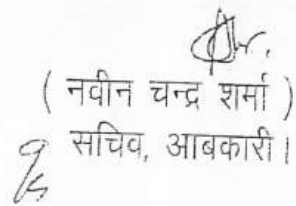 ( नवीन चन्द्र शर्मा )
सचिव, आबकारी।